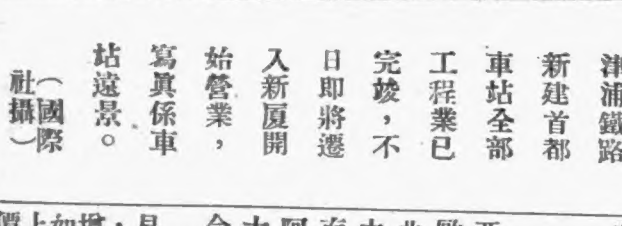 津浦鐵路
新建首都
車站全部
工程業已
完竣，不
日即將遷
入新厦開
始營業，
寫眞係車
站遠景。
（國際
社攝）